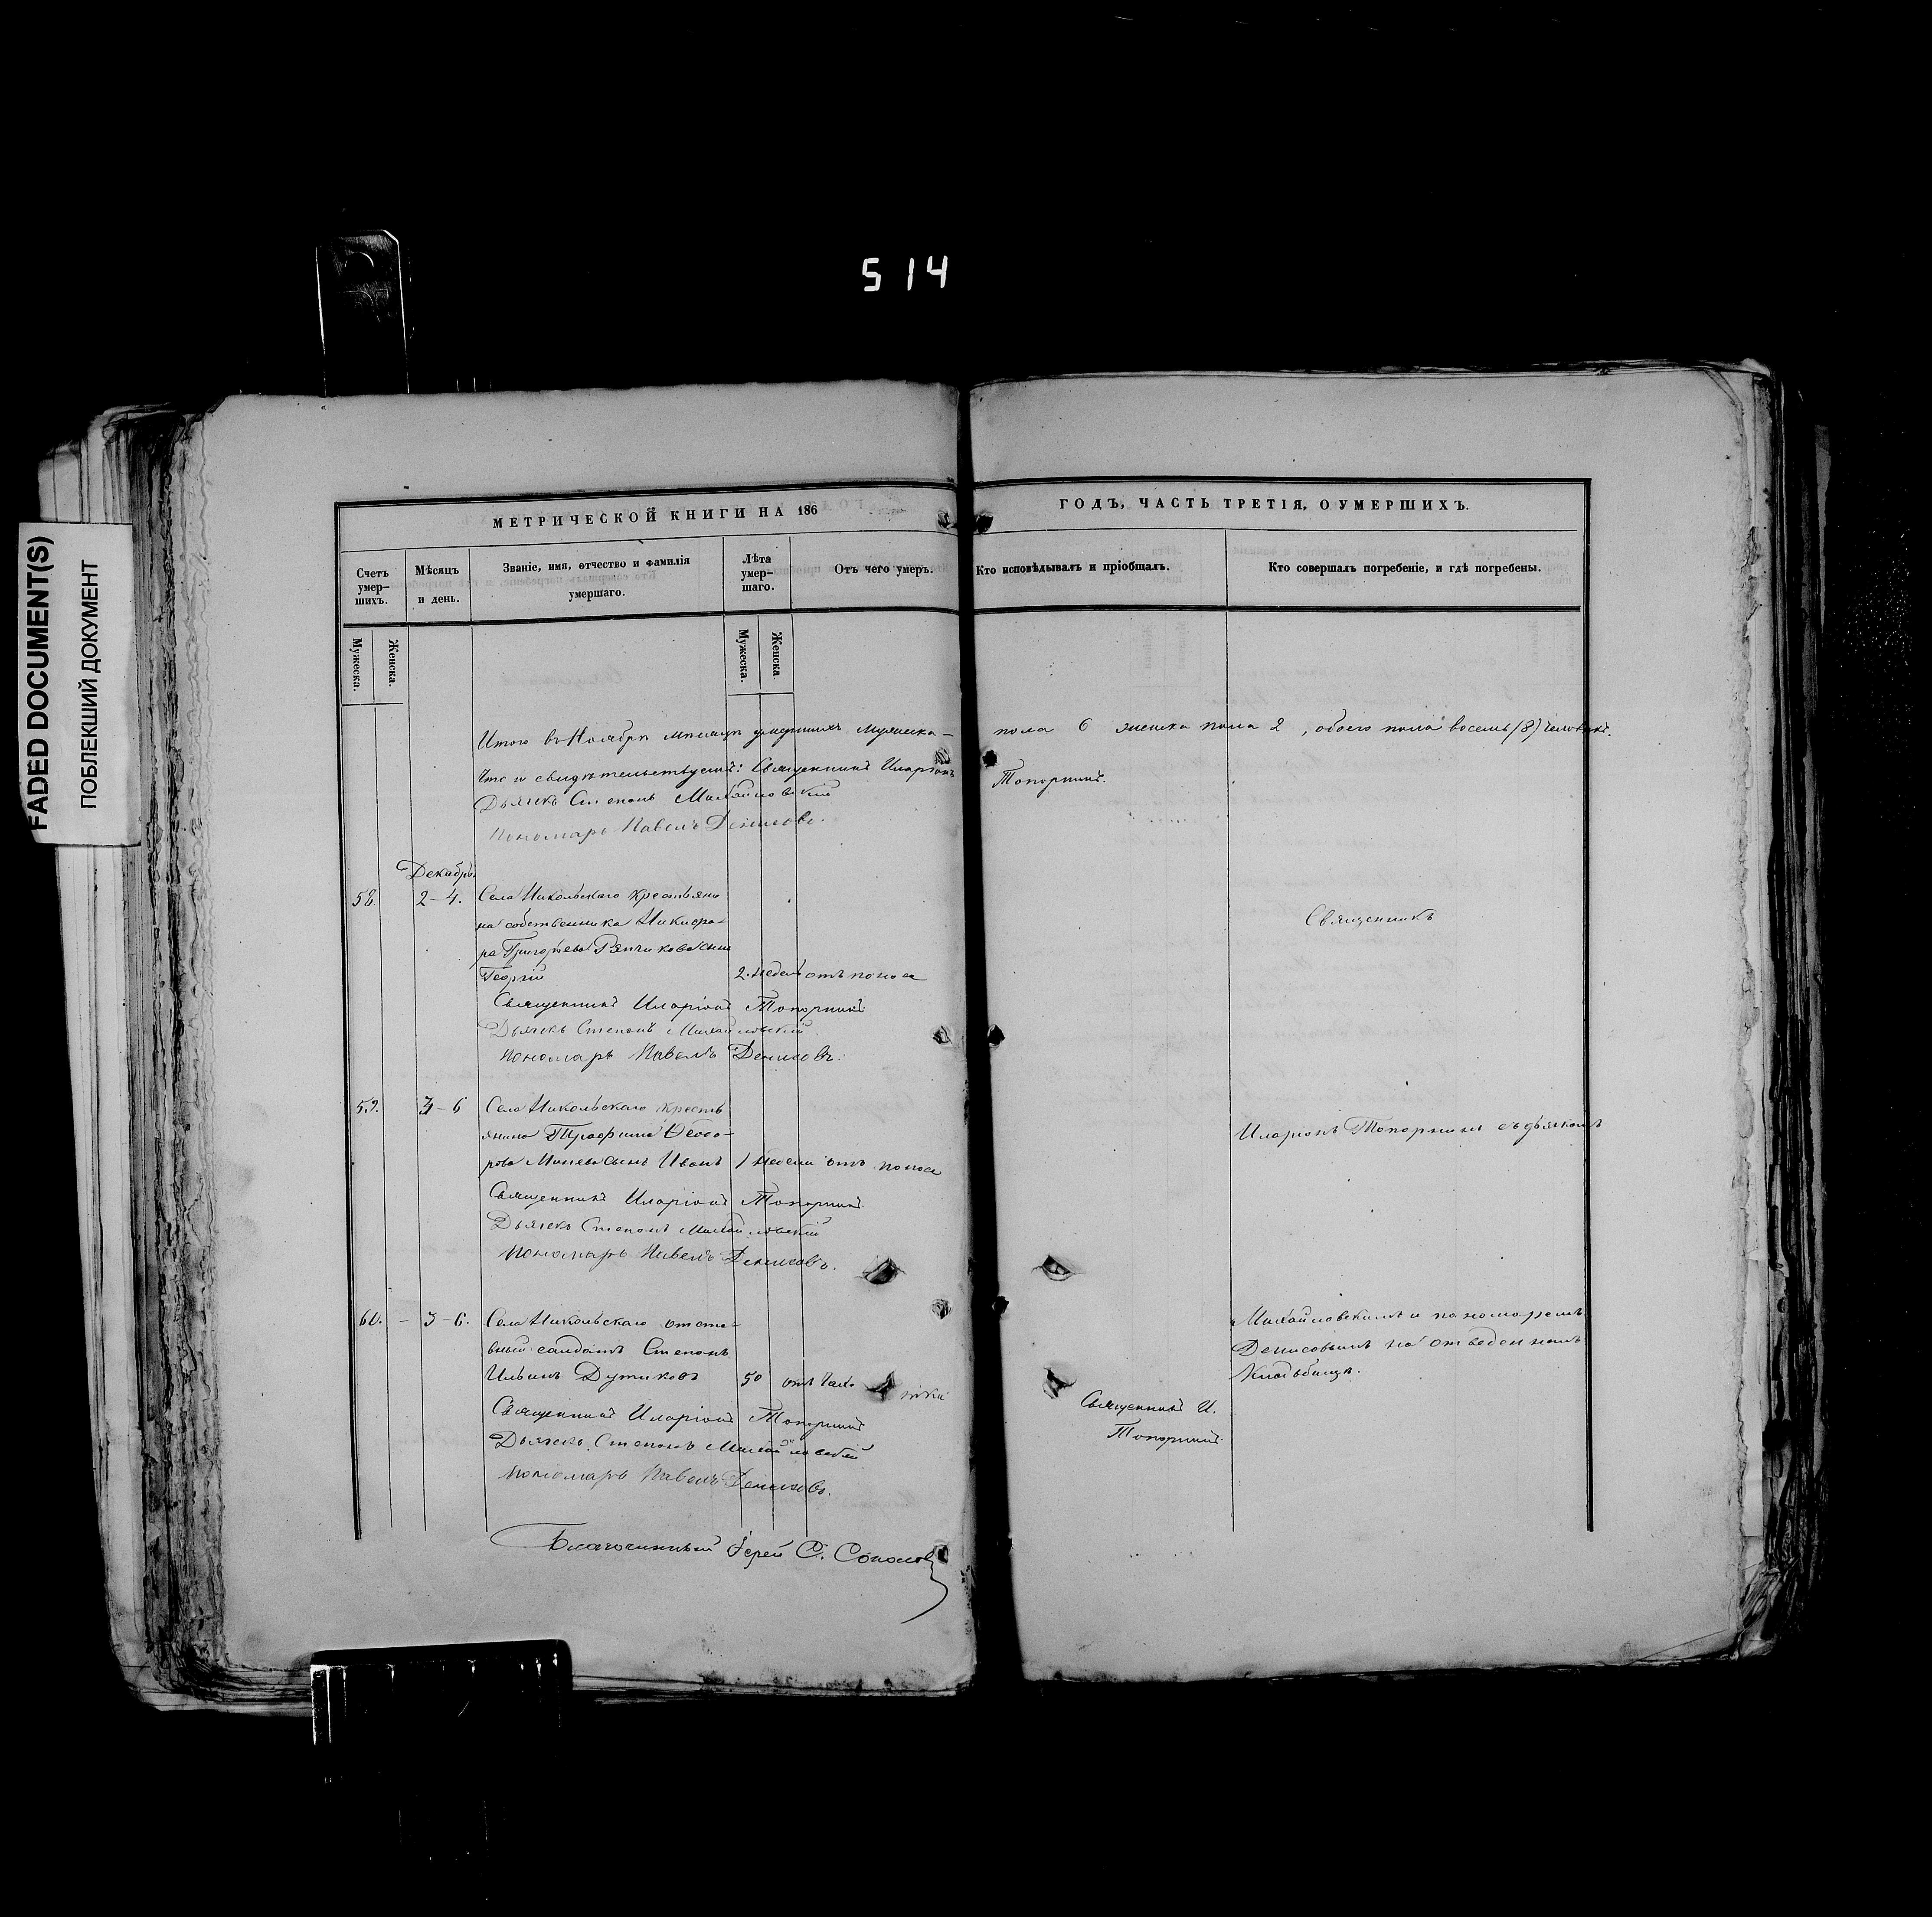 514
FADED DOCUMENT(S)
ПОБЛЕКШИЙ ДОКУМЕНТ
МЕТРИЧЕСКОЙ КНИГИ НА 186
ГОДЪ, ЧАСТЬ ТРЕТІЯ, О УМЕРШИХЪ.
Счетъ умер-шихъ.
Мѣсяцъ и день.
Званіе, имя, отчество и фамилія умершаго.
Лѣта умер-шаго.
Отъ чего умеръ.
Кто исповѣдывалъ и пріобщалъ.
Кто совершалъ погребеніе, и гдѣ погребены.
Мужеска.
Женска.
Мужеска.
Женска.
Итого въ Ноябрѣ мѣсяцѣ умершихъ мужеска- пола 6 женска пола 2, обоего пола восемь (8) человѣкъ.
Что и свидѣтельствуемъ: Священникъ Иларіонъ Топорнинъ.
Дьячекъ Степанъ Михайловскій
Пономарь Павелъ Денисовъ.
Декабрь.
58. 2-4. Села Никольскаго крестьяни
на собственника Никифо-
ра Григорьева сынъ
Георгій 2. недель отъ поноса
Священникъ
Священникъ Иларіонъ Топорнинъ
Дьячекъ Степанъ Михайловскій
Пономарь Павелъ Денисовъ.
59. 3-6 Села Никольскаго кресть
янина Трофима Ѳеодо-
рова сынъ Иванъ 1 недели отъ поноса
Иларіонъ Топорнинъ съ дьячкомъ
Священникъ Иларіонъ Топорнинъ
Дьячекъ Степанъ Михайловскій
Пономарь Павелъ Денисовъ.
60. - 3-6. Села Никольскаго отста-
вный солдатъ Степанъ
Ильинъ 50 отъ
Михайловскимъ и пономаремъ
Денисовымъ на отведенномъ
кладбищѣ.
Священникъ И.
Топорнинъ.
Священникъ Иларіонъ Топорнинъ
Дьячекъ Степанъ Михайловскій
Пономарь Павелъ Денисовъ.
Благочинный Іерей С. Соколовъ